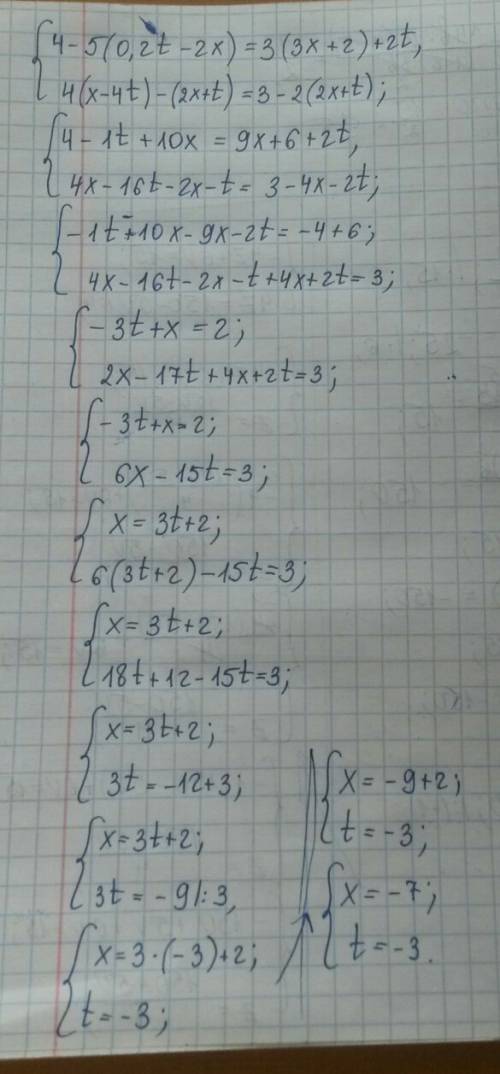 {4-5(0,2t-2x)=3(3x+2)+2t,
4(x-4t)-(2x+t)=3-2(2x+t);
{4-1t+10x=9x+6+2t,
4x-16t-2x-t=3-4x-2t;
{-1t+10x-9x-2t=-4+6;
4x-16t-2x-t+4x+2t=3;
{-3t+x=2;
2x-17t+4x+2t=3;
{-3t+x=2;
6x-15t=3;
{x=3t+2;
6(3t+2)-15t=3;
{x=3t+2;
18t+12-15t=3;
{x=3t+2;
3t=-12+3;
{x=3t+2;
3t=-9|:3,
{x=3·(-3)+2;
t=-3;
{x=-9+2;
t=-3;
{x=-7;
t=-3.